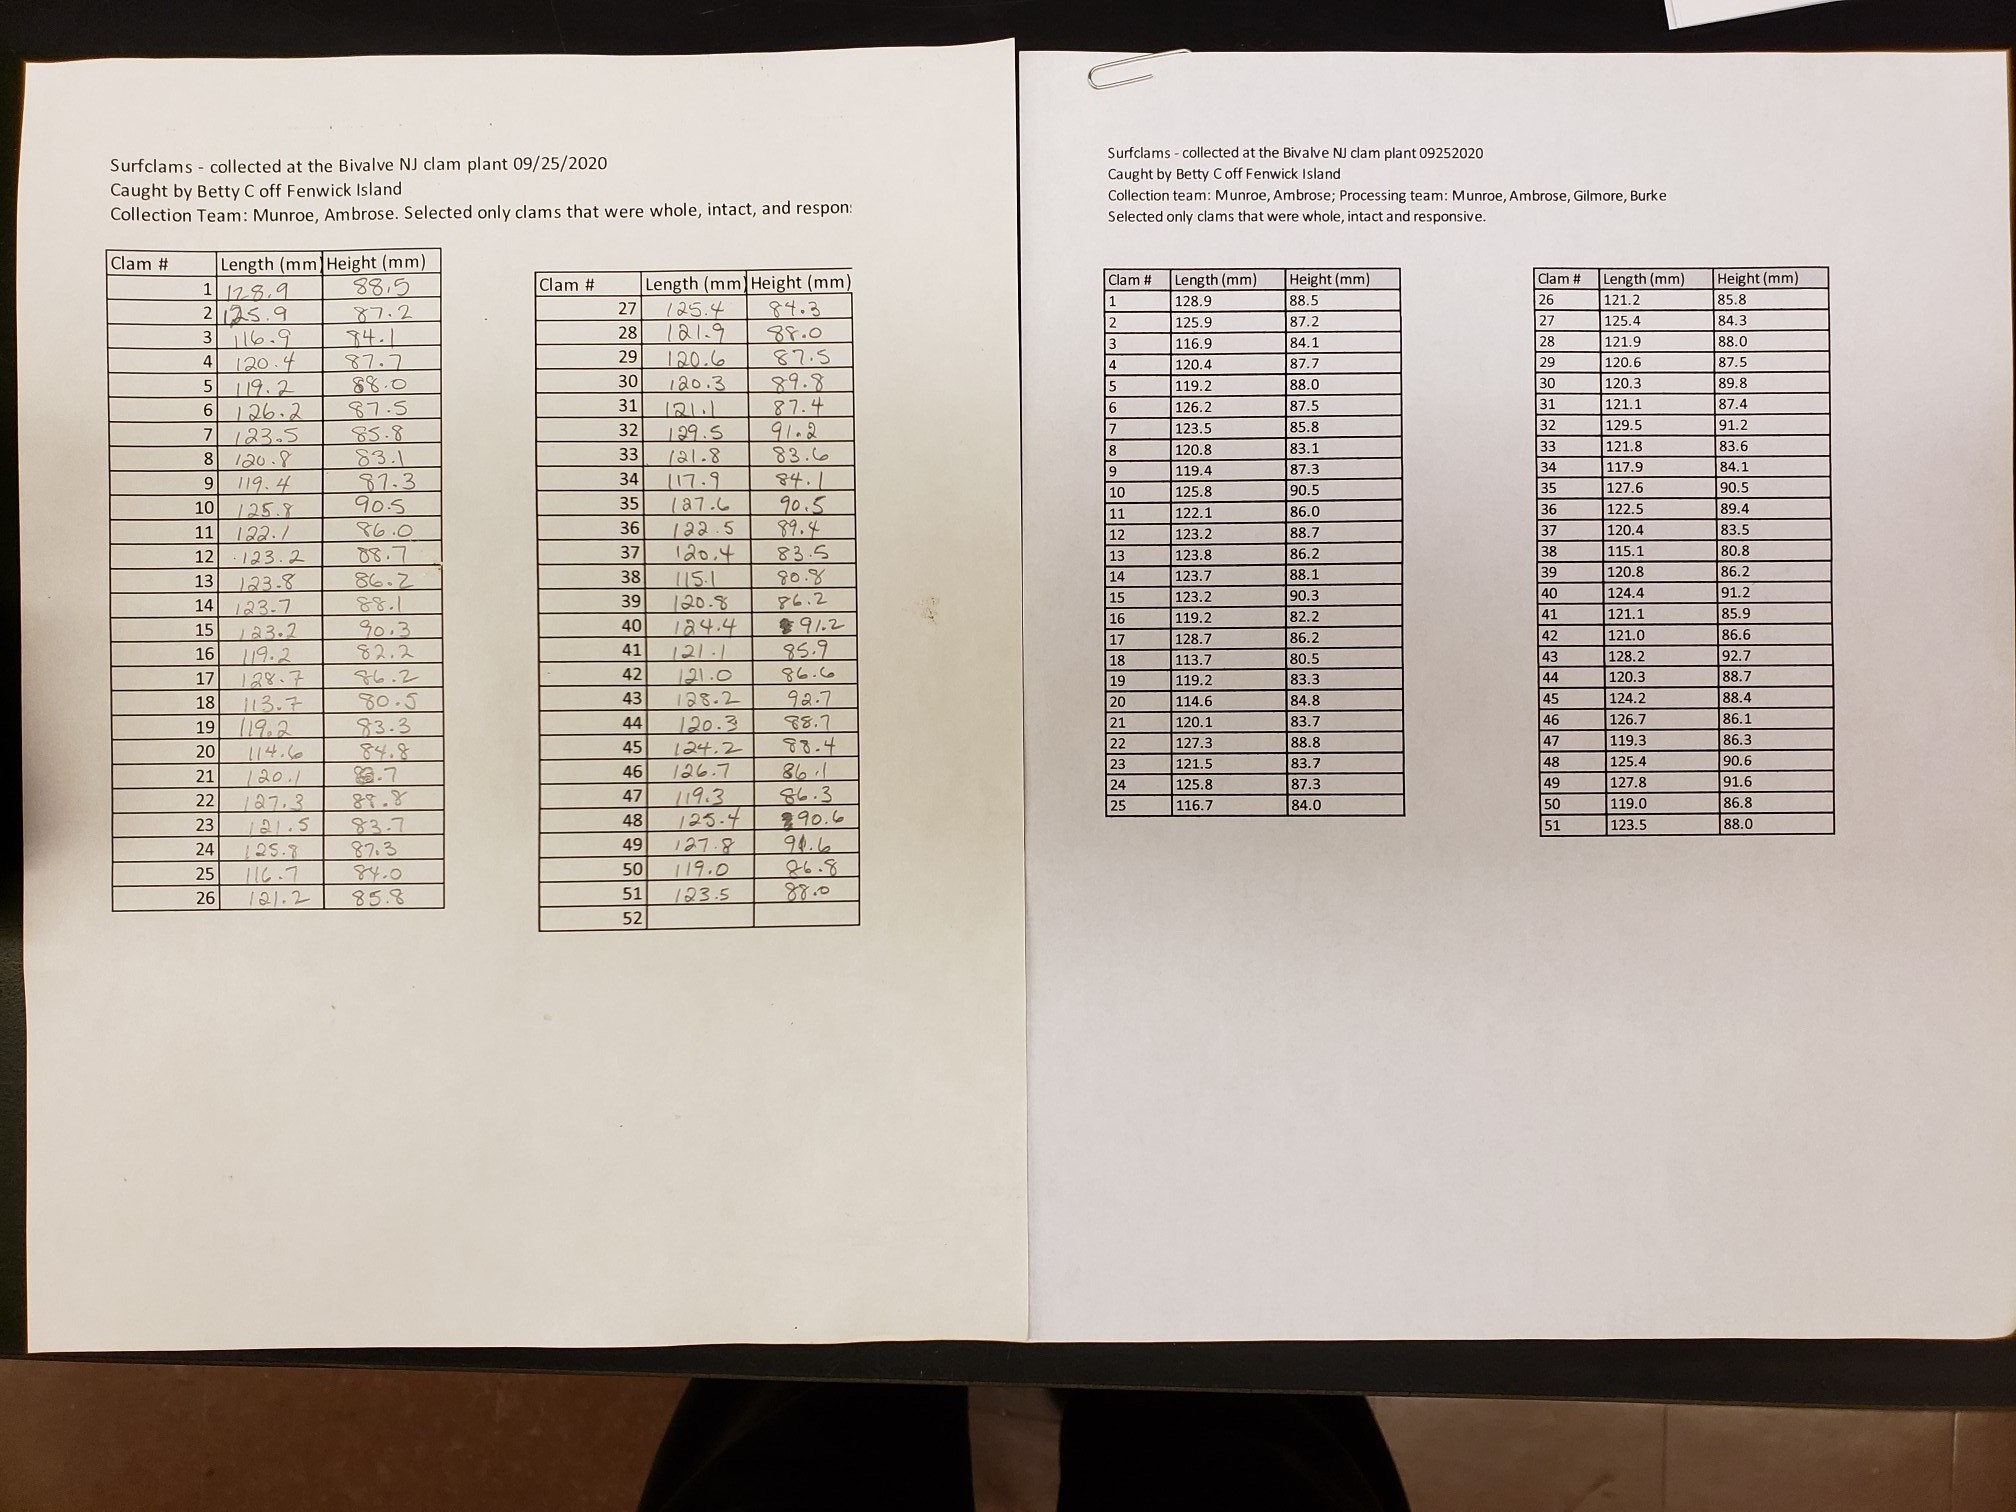 Surfclams - collected at the Bivalve NJ clam plant 09/25/2020
Caught by Betty C off Fenwick Island
Collection Team: Munroe, Ambrose. Selected only clams that were whole, intact, and respon
Clam # Length (mm) Height (mm)
1 128.9 88.5
2 125.9 87.2
3 116.9 84.1
4 120.4 87.7
5 119.2 88.0
6 126.2 87.5
7 123.5 85.8
8 120.8 83.1
9 119.4 87.3
10 125.8 90.5
11 122.1 86.0
12 123.2 88.7
13 123.8 86.2
14 123.7 88.1
15 123.2 90.3
16 119.2 82.2
17 128.7 86.2
18 113.7 80.5
19 119.2 83.3
20 114.6 84.8
21 120.1 83.7
22 127.3 88.8
23 121.5 83.7
24 125.8 87.3
25 116.7 84.0
26 121.2 85.8
Clam # Length (mm) Height (mm)
27 125.4 84.3
28 121.9 88.0
29 120.6 87.5
30 120.3 89.8
31 121.1 87.4
32 129.5 91.2
33 121.8 83.6
34 117.9 84.1
35 127.6 90.5
36 122.5 89.4
37 120.4 83.5
38 115.1 80.8
39 120.8 86.2
40 124.4 91.2
41 121.1 85.9
42 121.0 86.6
43 128.2 92.7
44 120.3 88.7
45 124.2 88.4
46 126.7 86.1
47 119.3 86.3
48 125.4 90.6
49 127.8 91.6
50 119.0 86.8
51 123.5 88.0
52
Surfclams - collected at the Bivalve NJ clam plant 09252020
Caught by Betty C off Fenwick Island
Collection team: Munroe, Ambrose; Processing team: Munroe, Ambrose, Gilmore, Burke
Selected only clams that were whole, intact and responsive.
Clam # Length (mm) Height (mm)
1 128.9 88.5
2 125.9 87.2
3 116.9 84.1
4 120.4 87.7
5 119.2 88.0
6 126.2 87.5
7 123.5 85.8
8 120.8 83.1
9 119.4 87.3
10 125.8 90.5
11 122.1 86.0
12 123.2 88.7
13 123.8 86.2
14 123.7 88.1
15 123.2 90.3
16 119.2 82.2
17 128.7 86.2
18 113.7 80.5
19 119.2 83.3
20 114.6 84.8
21 120.1 83.7
22 127.3 88.8
23 121.5 83.7
24 125.8 87.3
25 116.7 84.0
Clam # Length (mm) Height (mm)
26 121.2 85.8
27 125.4 84.3
28 121.9 88.0
29 120.6 87.5
30 120.3 89.8
31 121.1 87.4
32 129.5 91.2
33 121.8 83.6
34 117.9 84.1
35 127.6 90.5
36 122.5 89.4
37 120.4 83.5
38 115.1 80.8
39 120.8 86.2
40 124.4 91.2
41 121.1 85.9
42 121.0 86.6
43 128.2 92.7
44 120.3 88.7
45 124.2 88.4
46 126.7 86.1
47 119.3 86.3
48 125.4 90.6
49 127.8 91.6
50 119.0 86.8
51 123.5 88.0